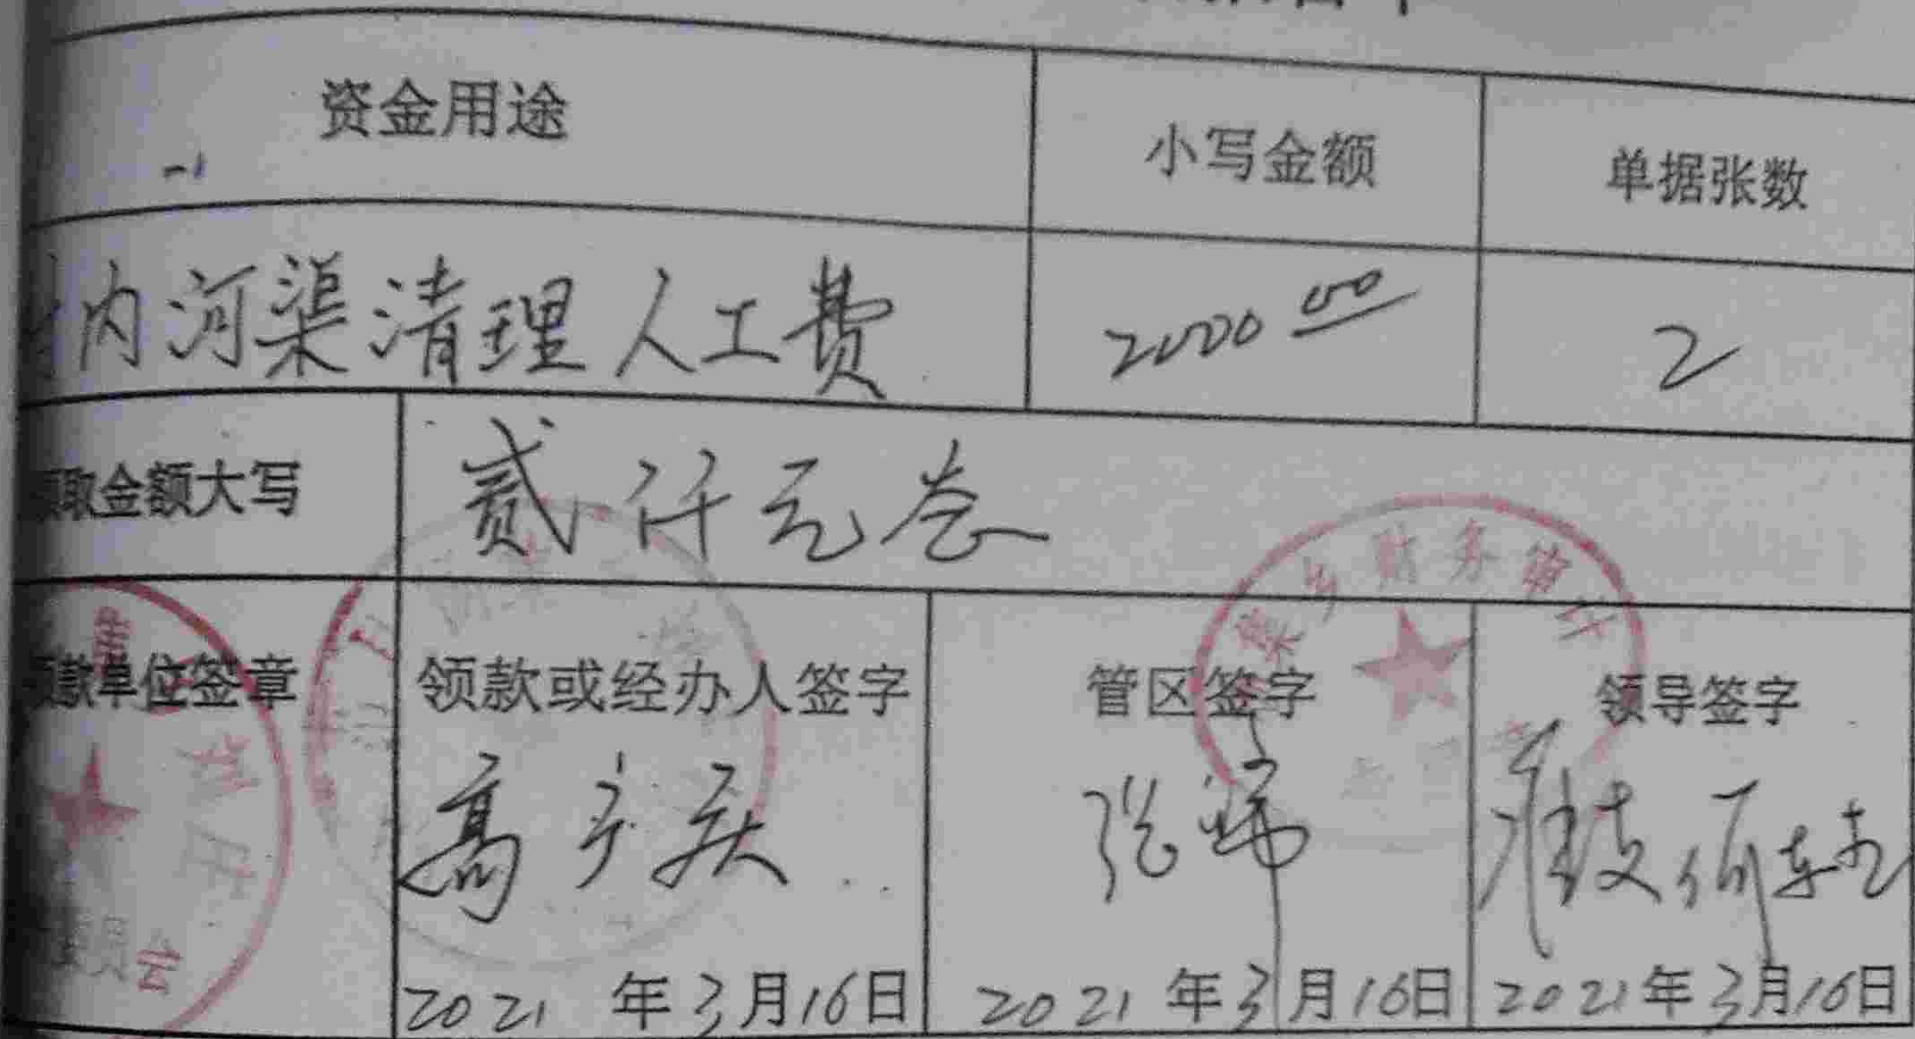 资金用途 小写金额 单据张数
内河渠清理人工费 2000.00 2
取金额大写 贰仟元叁
款单位签章 领款或经办人签字 管区签字 领导签字
乡财务审计
高 张
2021年3月16日 2021年3月16日 2021年3月16日